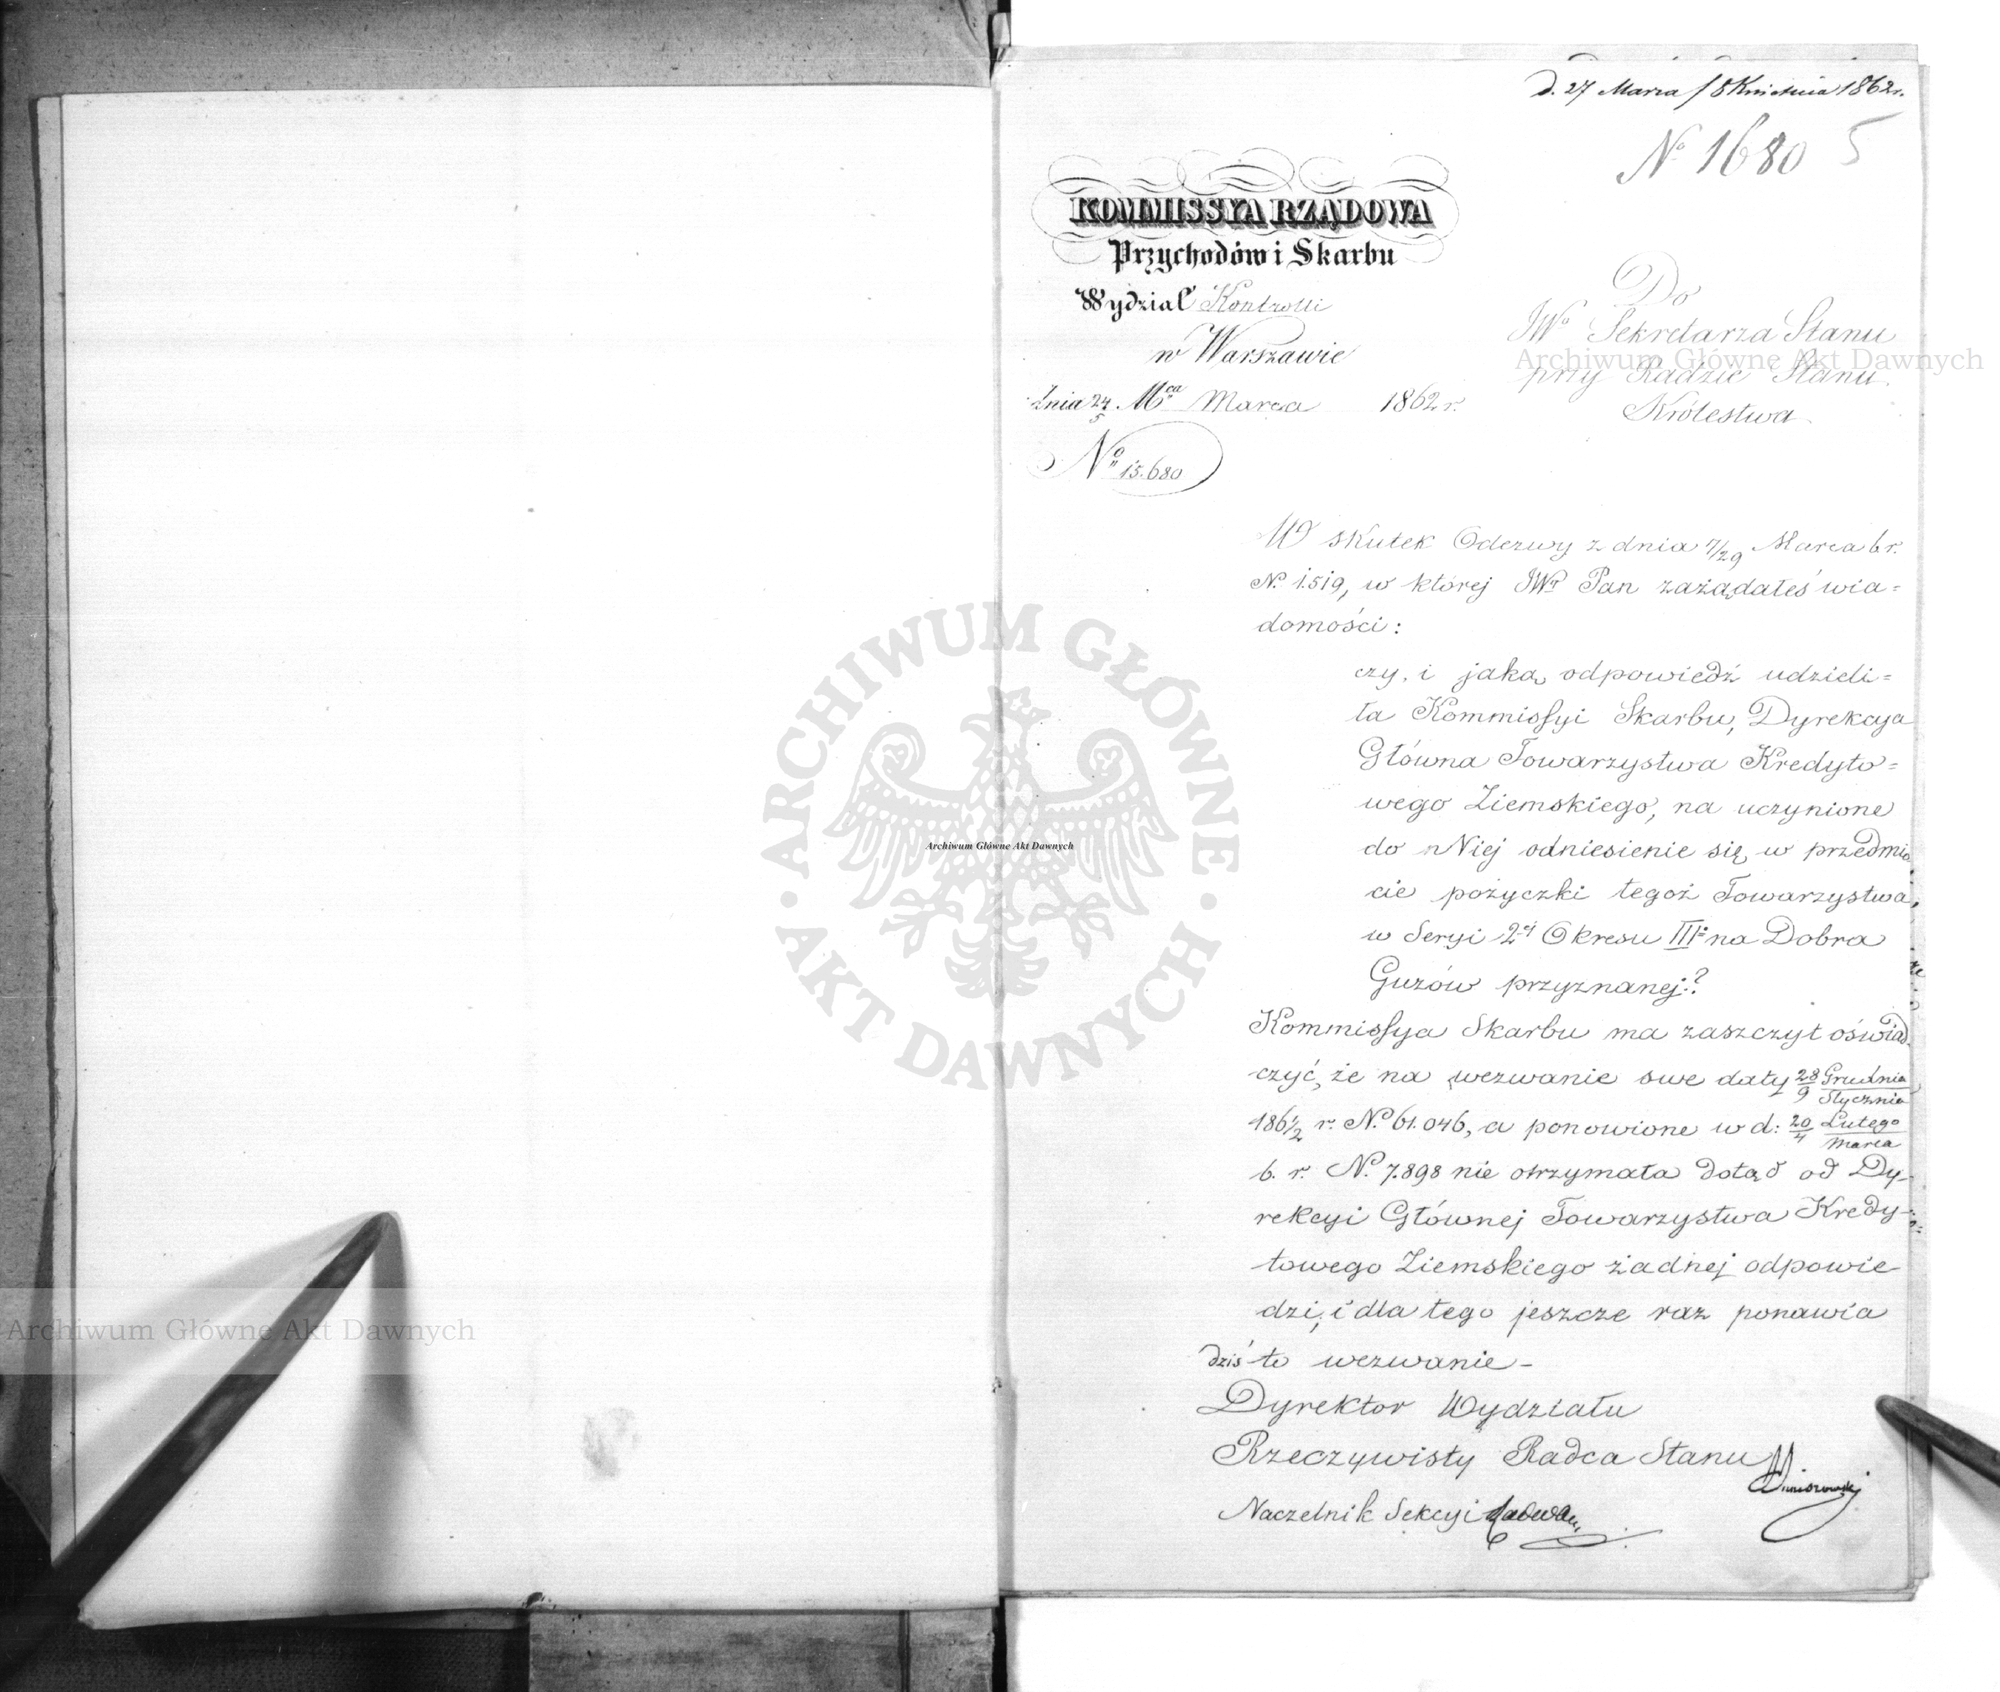 d. 27 Marca / 8 Kwietnia 1862 r.
No 1680 5
KOMMISSYA RZĄDOWA
Przychodów i Skarbu
Wydział Kontrolli
w Warszawie
dnia 24/5 Mca Marca 1862 r.
No 15.680
Do
JWo Sekretarza Stanu
przy Radzie Stanu
Królestwa.
W skutek Odezwy z dnia 17/29 Marca b r.
No 1.519, w której JWy Pan zażądałeś wia=
domości:
czy, i jaką odpowiedź udzieli=
ła Kommissyi Skarbu, Dyrekcya
Główna Towarzystwa Kredyto=
wego Ziemskiego, na uczynione
do Niej odniesienie się w przedmio
cie pożyczki tegoż Towarzystwa,
w Seryi 2ej Okresu III= na Dobra
Guzów przyznanej?
Kommissya Skarbu ma zaszczyt oświad
czyć, że na wezwanie swe daty 28/9 Grudnia/Stycznia
186 1/2 r. No 61.046, a ponowione w d: 20/4 Lutego/Marca
b. r. No 7.898 nie otrzymała dotąd od Dy-
rekcyi Głównej Towarzystwa Kredy-
towego Ziemskiego żadnej odpowie
dzi, i dla tego jeszcze raz ponawia
dziś to wezwanie -
Dyrektor Wydziału
Rzeczywisty Radca Stanu
Naczelnik Sekcyi
Archiwum Główne Akt Dawnych
ARCHIWUM GŁÓWNE · AKT DAWNYCH ·
Archiwum Główne Akt Dawnych
Archiwum Główne Akt Dawnych